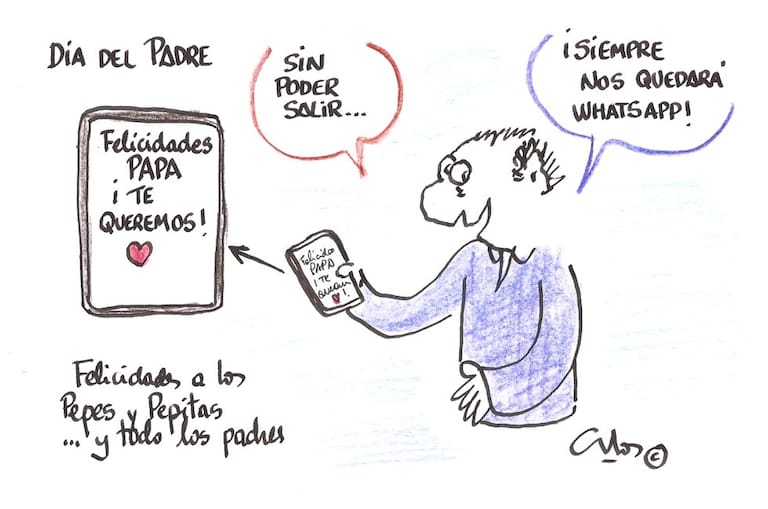 DÍA DEL PADRE
SIN
PODER
SALIR...
¡SIEMPRE
NOS QUEDARÁ
WHATSAPP!
Felicidades
PAPA
¡TE
QUEREMOS!
Felicida
PAPA
¡TE
!
Felicidades a los
Pepes y Pepitas
... y todo los padres
©